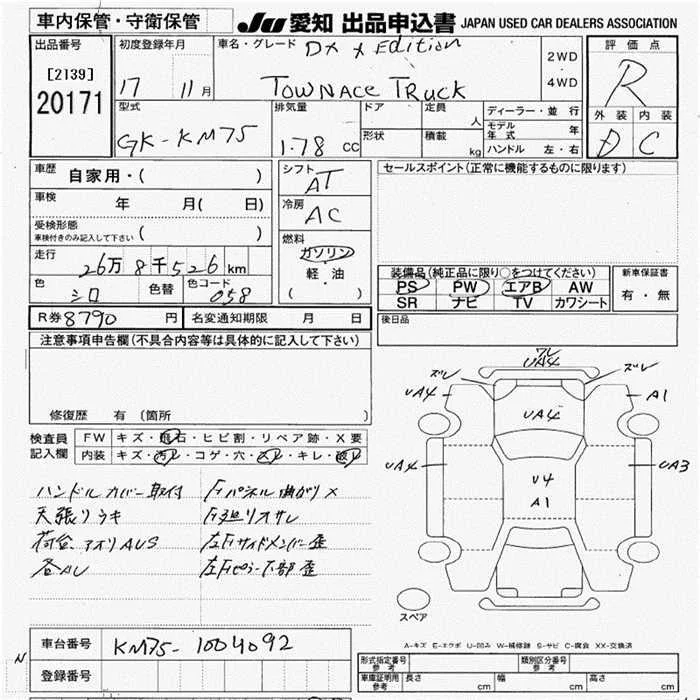 車内保管・守衛保管
JU 愛知 出品申込書 JAPAN USED CAR DEALERS ASSOCIATION
出品番号
[2139]
20171
初度登録年月
17 11月
車名・グレード DX X Edition
TOWNACE TRUCK
2WD
4WD
評価点
R
外装 内装
D C
型式
GK-KM75
排気量
1.78 cc
ドア
形状
定員
人
積載
kg
ディーラー・並 行
モデル年式 年
ハンドル 左・右
車歴 自家用・( )
車検 年 月( 日)
受検形態
車検付きのみ記入して下さい ( )
走行 26万8千526km
色 シロ 色替 色コード 058
シフト AT
冷房 AC
燃料
ガソリン
軽・油
( )
セールスポイント(正常に機能するものに限ります)
装備品(純正品に限り○をつけてください)
PS PW エアB AW
SR ナビ TV カワシート
新車保証書
有・無
R券 8790 円 名変通知期限 月 日
後日品
注意事項申告欄(不具合内容等は具体的に記入して下さい)
修復歴 有 (箇所 )
検査員
記入欄
FW キズ・飛石・ヒビ割・リペア跡・X要
内装 キズ・汚レ・コゲ・穴・スレ・キレ・破レ
ハンドル カバー取付
天張リウキ
荷台 アオリAUS
各AU
パネル曲がりX
左Fサイドメンバー歪
左Fピラー下部歪
ワレ
UA4
ズレ ズレ
UA4 A1
UA4
UA4 UA3
U4
A1
スペア
A-キズ E-エクボ U-凹み W-補修跡 S-サビ C-腐食 XX-交換済
N
車台番号 KM75-1004092
登録番号
形式指定番号
参考
類別区分番号
参考
車庫証明用
参考
長さ cm 幅 cm 高さ cm